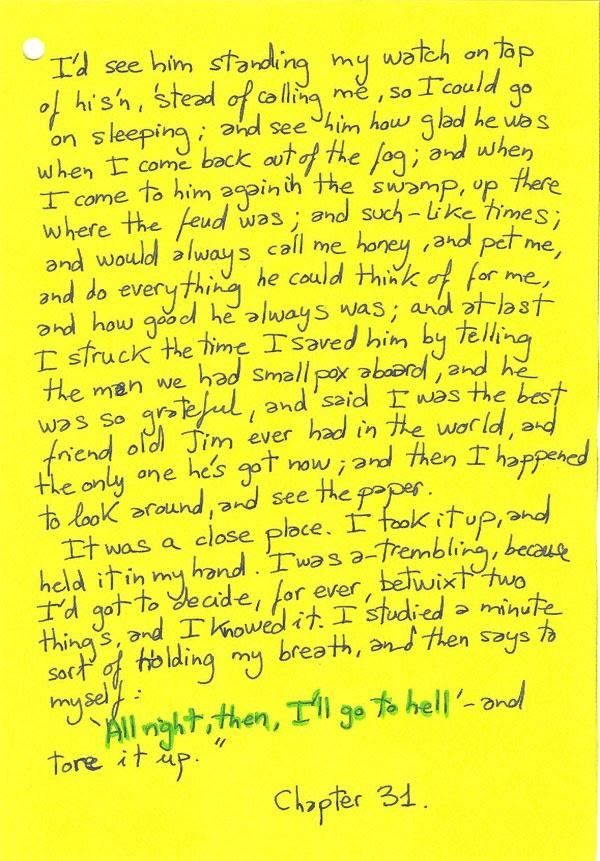 I'd see him standing my watch on top
of his'n, 'stead of calling me, so I could go
on sleeping; and see him how glad he was
when I come back out of the fog; and when
I come to him again in the swamp, up there
where the feud was; and such-like times;
and would always call me honey, and pet me,
and do everything he could think of for me,
and how good he always was; and at last
I struck the time I saved him by telling
the men we had small pox aboard, and he
was so grateful, and said I was the best
friend old Jim ever had in the world, and
the only one he's got now; and then I happened
to look around, and see the paper.
It was a close place. I took it up, and
held it in my hand. I was a-trembling, because
I'd got to decide, for ever, betwixt two
things, and I knowed it. I studied a minute
sort of holding my breath, and then says to
myself:
'All right, then, I'll go to hell' - and
tore it up."
Chapter 31.